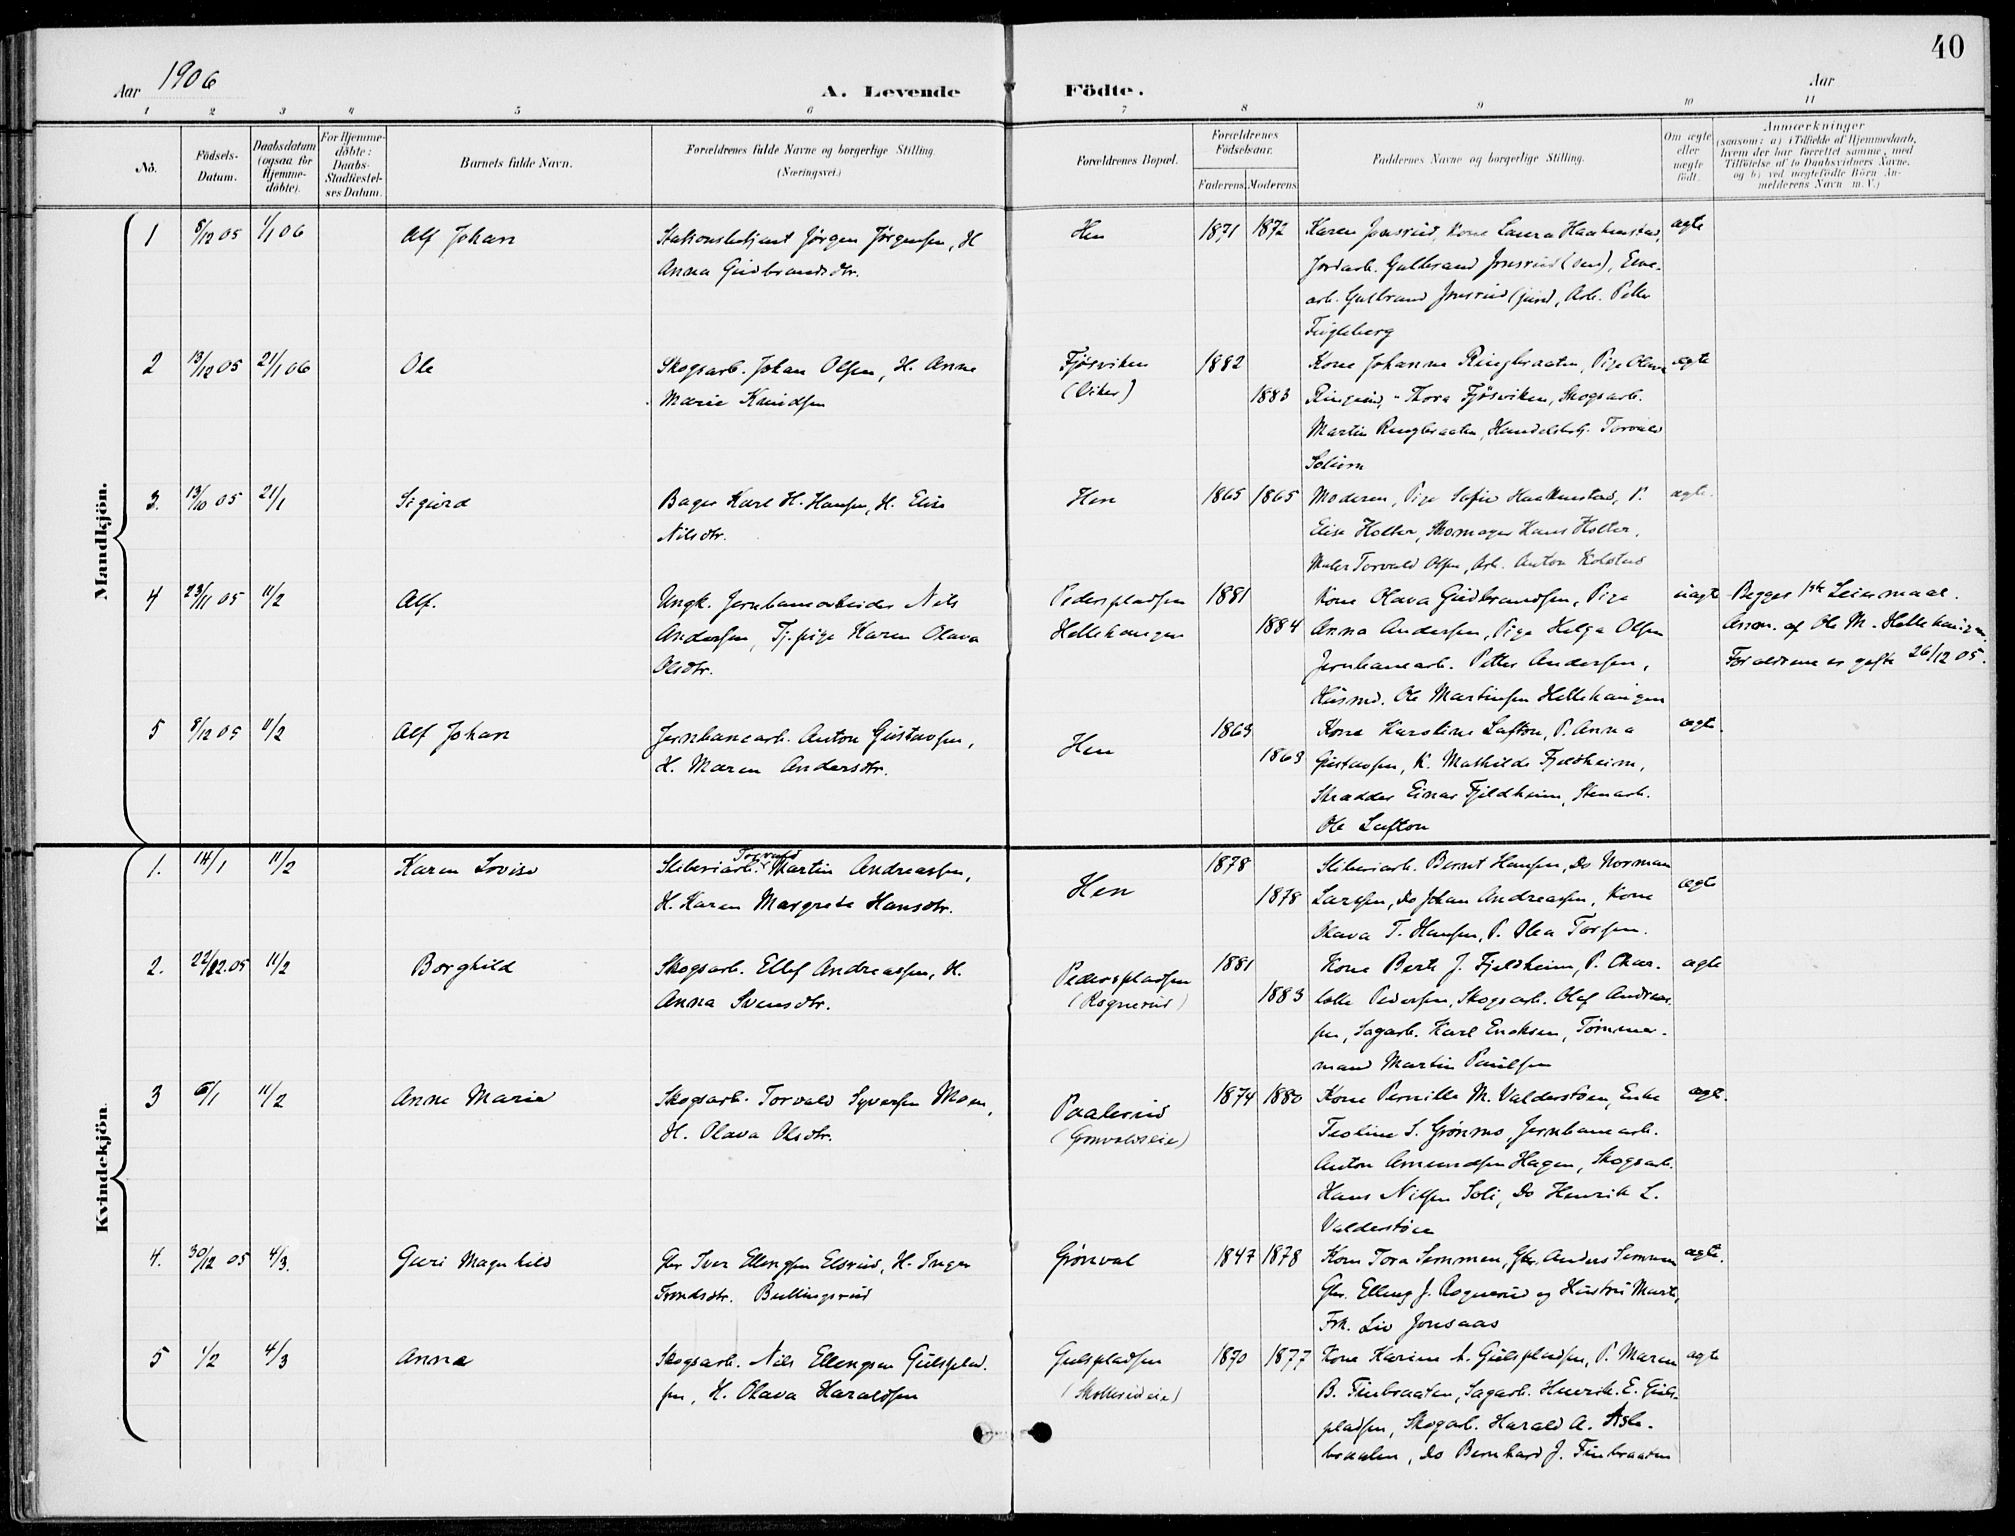 40
Aar 1906
A. Levende Födte.
Aar
1 2 3 4 5 6 7 8 9 10 11
No.
Födsels-
Datum.
Daabsdatum
(ogsaa för
Hjemme-
döbte).
For Hjemme-
döbte:
Daabs-
Stadfæstel-
ses Datum.
Barnets fulde Navn.
Forældrenes fulde Navne og borgerlige Stilling.
(Næringsvei.)
Forældrenes Bopæl.
Forældrenes
Födselsaar.
Faderens Moderens
Faddernes Navne og borgerlige Stilling.
Om ægte
eller
uægte
födt.
Anmærkninger
(saasom: a) i Tilfælde af Hjemmedaab,
hvem der har forrettet samme, med
Tilföielse af to Daabsvidners Navne,
og b) ved uægtefödte Börn An-
melderens Navn m. V.)
Mandkjön.
1 8/12 05 1/1 06 Alf Johan
Stationsbetjent Jörgen Jörgensen, H.
Anna Gudbrandsdtr.
Hen 1871 1872
Karen Jonsrud, Kone Laura Haakenstad,
Jordarb. Gulbrand Jonsrud (sen),
arb. Gulbrand Jonsrud (jun), Arb. Petter
Fugleberg
ægte
2 13/12 05 21/1 06 Ole
Skogsarb. Johan Olsen, H. Anne
Marie Knudsen
Fjösviken
(Viker)
1882
1883
Kone Johanne Ringbraaten, Pige Olava
Ringerud, " Thora Fjösviken, Skogsarb.
Martin Ringbraaten, Handelsbtj. Torvald
Solum
ægte
3. 13/10 05 21/1 Sigurd
Bager Karl H. Hansen, H. Elise
Nilsdtr.
Hen 1865 1865
Moderen, Pige Sofie Haakenstad, P.
Elise Holter, Skomager Hans Holter,
Maler Torvald Olsen, Arb. Anton Kolstad
ægte.
4 23/11 05 11/2 Alf.
Ungk. Jernbanearbeider Nils
Andersen, Tj.pige Karen Olava
Olsdtr.
Pederspladsen
Hellehaugen
1881
1884
Kone Olava Gudbrandsen, Pige
Anna Andersen, Pige Helga Olsen
Jernbanearb. Petter Andersen,
Husmd. Ole Martinsen Hellehaugen
uægte
Begges 1ste Leiermaal.
Anm. af Ole M. Hellehaugen.
Forældrene er gifte 26/12 05.
5 8/12 05 11/2 Alf Johan
Jernbanearb. Anton Gustavsen,
H. Maren Andersdtr.
Hen
1863
1863
Kone Karoline Lafton, P. Anna
Gustavsen, K. Mathilde Fjeldheim,
Skrædder Einar Fjeldheim, Stenarb.
Ole Lafton
ægte.
Kvindekjön.
1. 14/1 11/2 Karen Lovise
Torvald
Sliberiarb. Martin Andreassen,
H. Karen Margrete Hansdtr.
Hen
1878
1878
Sliberiarb. Bernt Hansen, Do Norman
Larssen, do Johan Andreassen, Kone
Olava T. Hansen, P. Olea Torsen.
ægte
2. 22/12.05 11/2 Borghild
Skogsarb. Ellef Andreassen, H.
Anna Svensdtr.
Pederspladsen
(Rognerud)
1881
1883
Kone Berte J. Fjeldheim, P. Char-
lotte Pedersen, Skogsarb. Olaf Andreas-
sen, Sagarb. Karl Eriksen, Tömmer-
mand Martin Paulsen
ægte
3 6/1 11/2 Anne Marie
Skogsarb. Torvald Syversen Moen,
H. Olava Olsdtr.
Paalerud
(Grönvoldseie)
1874 1880
Kone Pernille M. Valderstöen, Enke
Teoline S. Grönmo, Jernbanearb.
Anton Amundsen Hagen, Skogsarb.
Hans Nilsen Soli, Do Henrik L.
Valderstöen
ægte.
4. 30/12 05 4/3. Guri Magnhild
Gbr. Iver Ellingsen Elsrud, H. Inger
Trondsdtr. Bullingsrud
Grönvol 1847 1878
Kone Tora Semmen, Gbr. Anders Semmen
Gbr. Elling J. Rognerud og Hustru Marte,
Frk. Liv Jonsaas
ægte.
5 1/2 4/3 Anna
Skogsarb. Nils Ellingsen Gulsplad-
sen, H. Olava Haraldsen
Gulspladsen
(Skollerudeie)
1870 1877
Kone Karine A. Gulspladsen, P. Maren
B. Finbraaten, Sagarb. Henrik E. Guls-
pladsen, Skogarb. Harald A. Asle-
braaten, do Bernhard J. Finbraaten
ægte